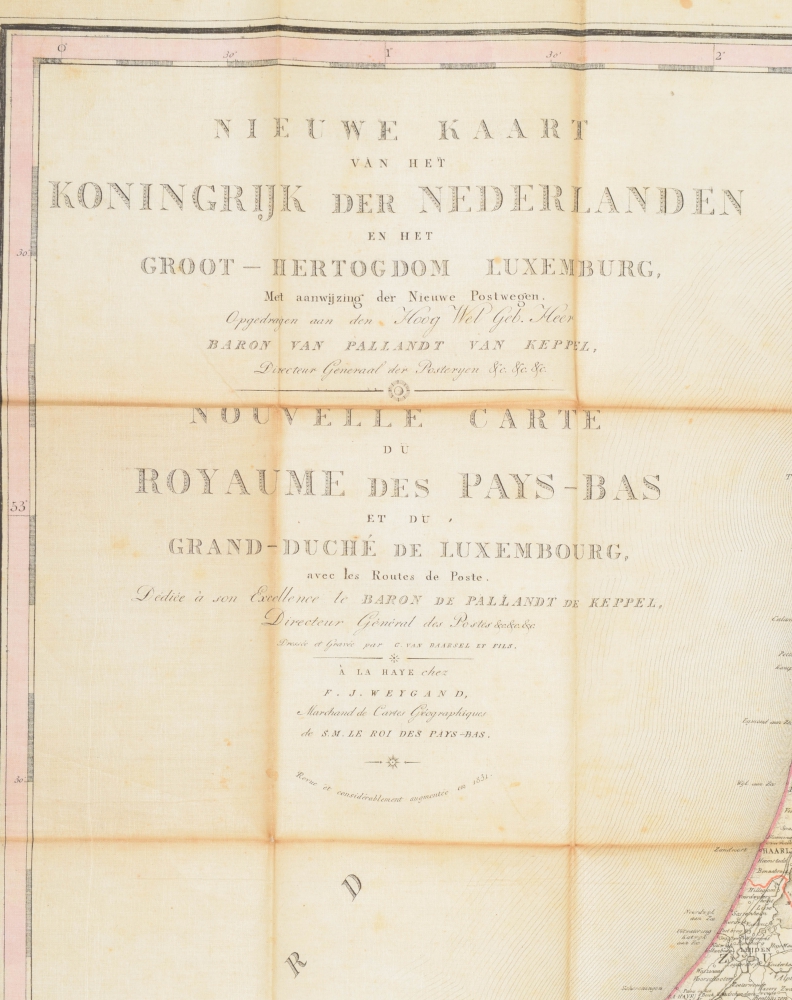 0 30' 1 30' 2
NIEUWE KAART
VAN HET
KONINGRIJK DER NEDERLANDEN
EN HET
GROOT-HERTOGDOM LUXEMBURG,
Met aanwijzing der Nieuwe Postwegen.
Opgedragen aan den Hoog Wel Geb. Heer
BARON VAN PALLANDT VAN KEPPEL,
Directeur Generaal der Posteryen &c. &c. &c.
NOUVELLE CARTE
DU
ROYAUME DES PAYS-BAS
ET DU
GRAND-DUCHÉ DE LUXEMBOURG,
avec les Routes de Poste.
Dédiée à son Excellence le BARON DE PALLANDT DE KEPPEL,
Directeur Général des Postes &c&c.&c.
Dressée et Gravée par C. VAN BAARSEL ET FILS.
À LA HAYE chez
F. J. WEYGAND,
Marchand de Cartes Géographiques
de S.M. LE ROI DES PAYS-BAS.
Revue et considérablement augmentée en 1831.
30'
53°
30'
R D
Egmond aan Zee
Wyk aan Zee
Zandvoort
HAARL
Noordwyk aan Zee
LEIDEN
Z U
Scheveningen